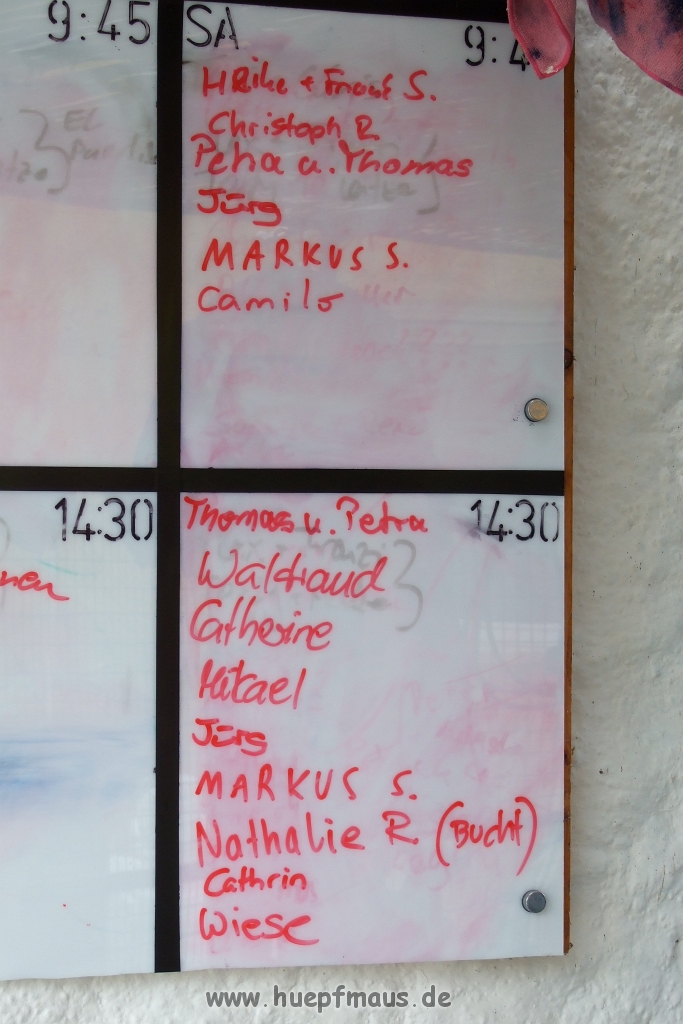 9:45
SA
9:4
Frank S.
Christoph R.
Petra u. Thomas
Jürg
MARKUS S.
Camilo
14:30
nen
Thomas u. Petra
14:30
Waltraud
Catherine
Mikael
Jürg
MARKUS S.
Nathalie R. (Bucht)
Cathrin
Wiese
www.huepfmaus.de